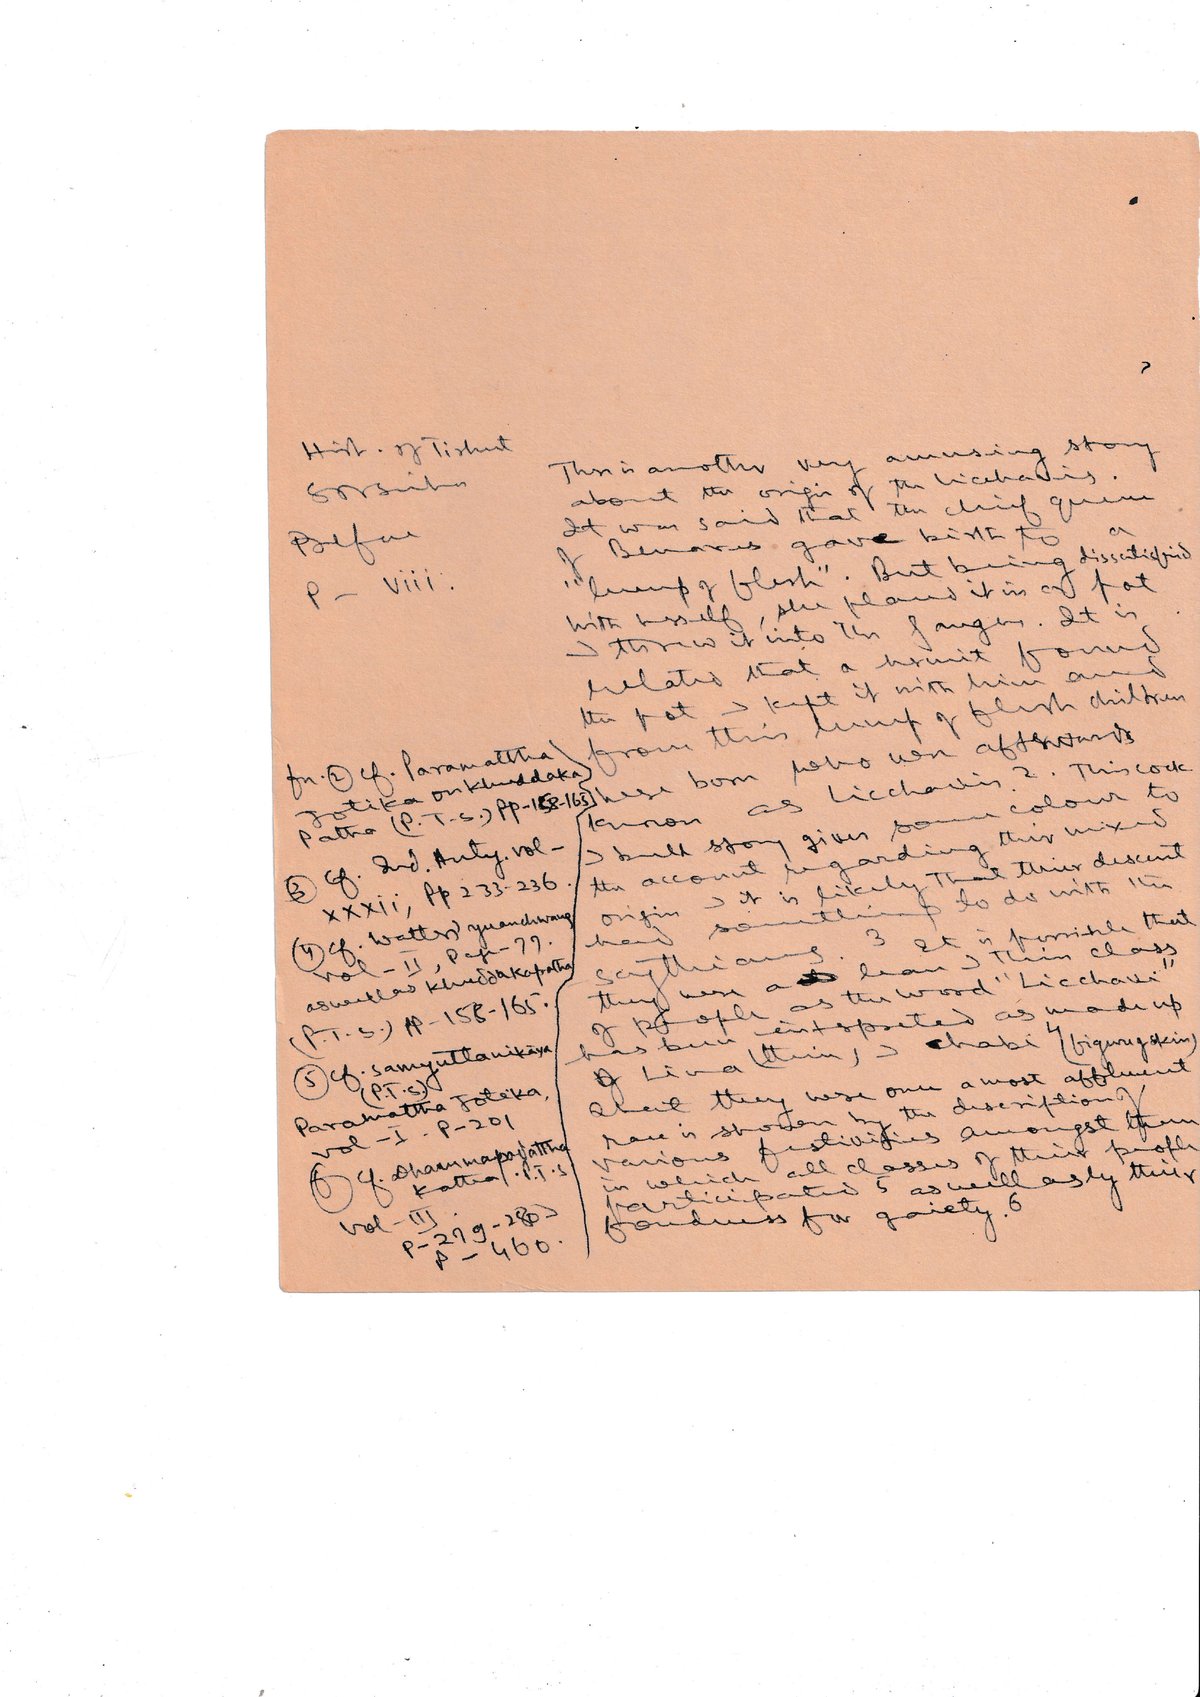 Hist. of Tirhut
S N Sinha
Before
P - viii.
There is another very amusing story
about the origin of the Licchavis.
It was said that the chief queen
of Benares gave birth to a
"lump of flesh". But being dissatisfied
with herself, she placed it in a pot
& threw it into the Ganges. It is
related that a hermit found
the pot & kept it with him and
from this lump of flesh children
were born who were afterwards
known as Licchavis 2. This cock
& bull story gives some colour to
the account regarding their mixed
origin & it is likely that their descent
had something to do with the
Scythians. 3 It is possible that
they were a lean & thin class
of people as the word "Licchavi"
has been interpreted as made up
of Lina (thin) & chabi 4 (figure of skin)
that they were once a most affluent
race is shown by the description of
various festivities amongst them
in which all classes of their people
participated 5 as well as by their
fondness for gaiety. 6
fn. (2) Cf. Paramattha
Jotika on Khuddaka
Patha (P.T.S.) pp-158-165
(3) Cf. Ind. Anty. vol-
xxxii, pp 233-236.
(4) Cf. Watters Yuanchwang
vol-II, page-77.
as well as Khuddakapatha
(P.T.S.) pp-158-165.
(5) Cf. Samyuttanikaya
(P.T.S.)
Paramattha Joteka,
vol-I. P-201
(6) Cf. Dhammapadattha
Katha, P.T.S
vol-III.
P-279-280 &
P-460.